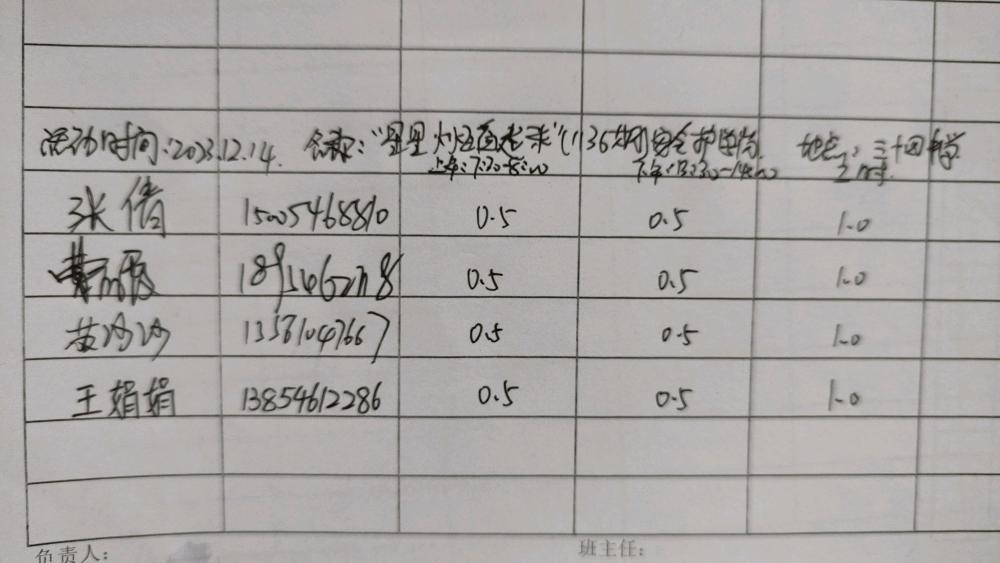 活动时间:2023.12.14. 名称:“星星灯火 点亮未来”(1136期)安全护学岗. 地点:三十四中学
上午:7:30-8:00 下午:13:30-14:00 工时
张倩 15005468810 0.5 0.5 1.0
0.5 0.5 1.0
黄沙沙 13561047667 0.5 0.5 1.0
王娟娟 13854612286 0.5 0.5 1.0
负责人: 班主任: